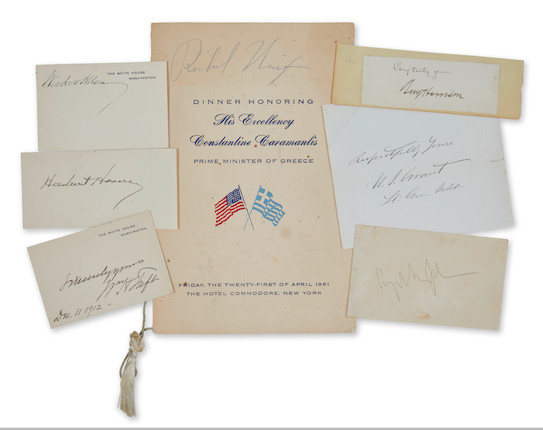 THE WHITE HOUSE
WASHINGTON
Woodrow Wilson
Herbert Hoover
THE WHITE HOUSE
WASHINGTON
Sincerely yours
Wm H Taft
Dec. 11 1912 -
Richard Nixon
DINNER HONORING
His Excellency
Constantine Caramanlis
PRIME MINISTER OF GREECE
FRIDAY, THE TWENTY-FIRST OF APRIL 1961
THE HOTEL COMMODORE, NEW YORK
Very truly yours
Benj Harrison
Respectfully Yours
U. S. Grant
Lt. Gen. USA